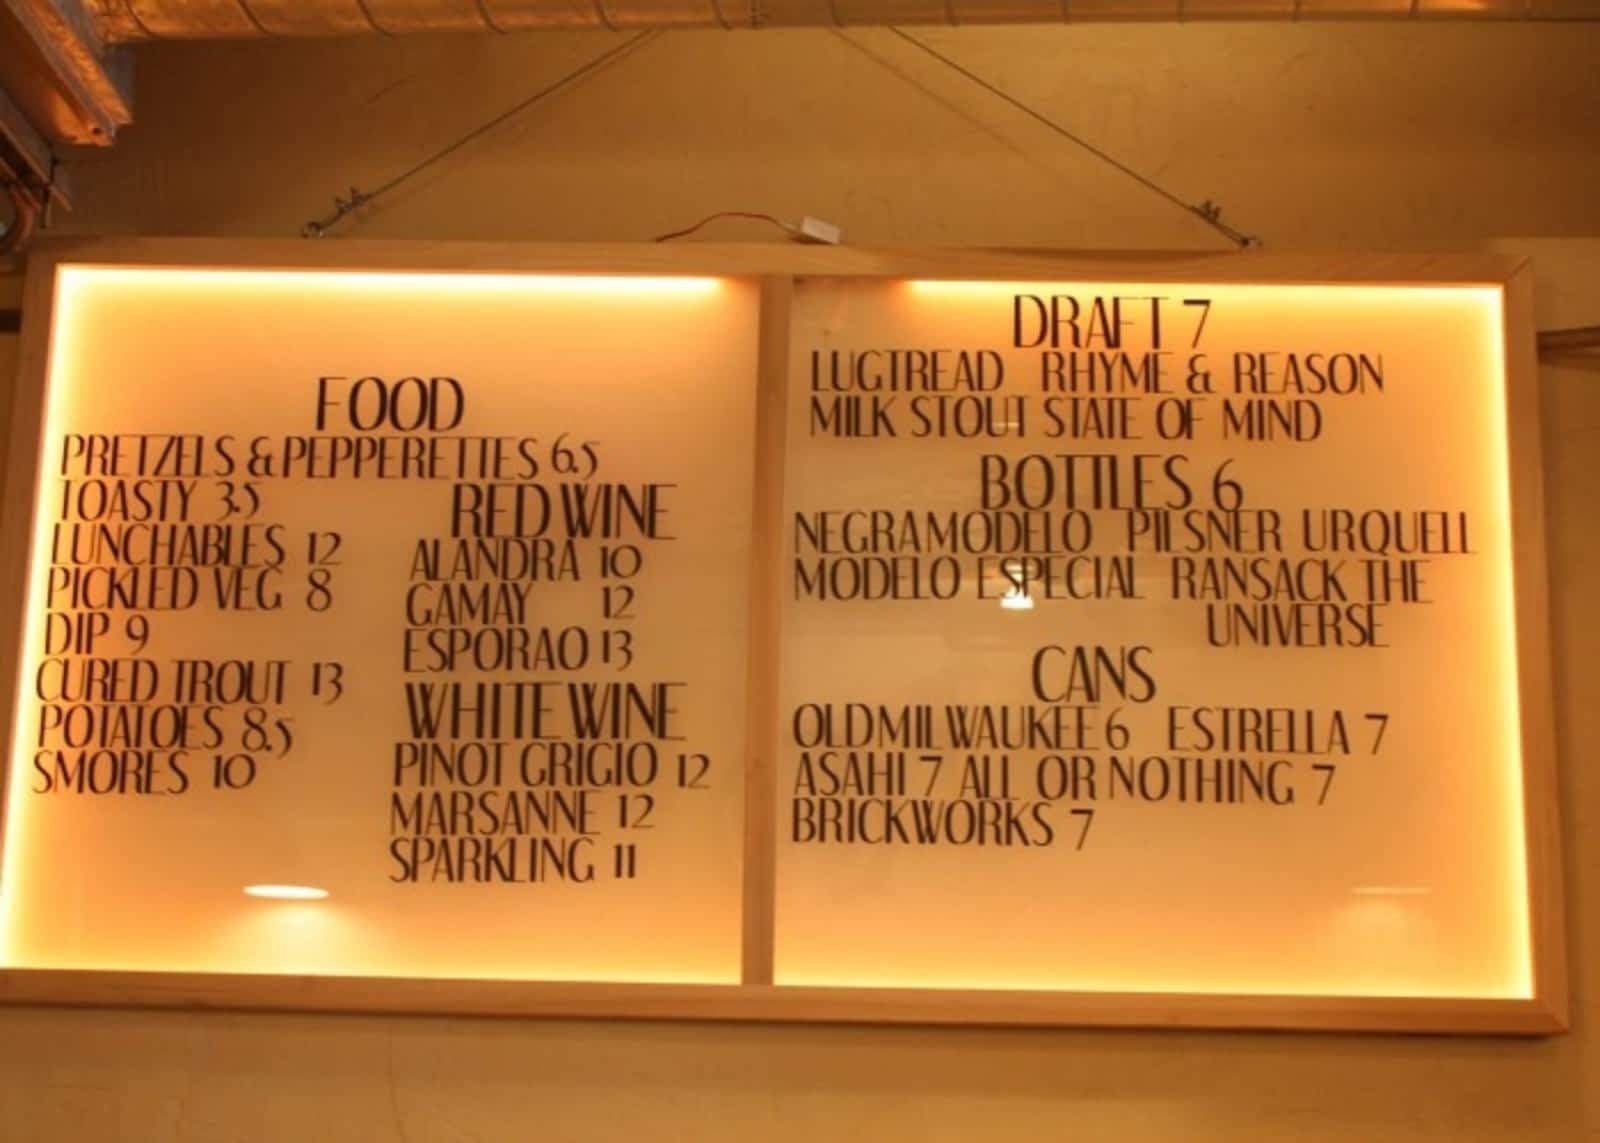 FOOD
PRETZELS & PEPPERETTES 6.5
TOASTY 3.5
LUNCHABLES 12
PICKLED VEG 8
DIP 9
CURED TROUT 13
POTATOES 8.5
SMORES 10
RED WINE
ALANDRA 10
GAMAY 12
ESPORAO 13
WHITE WINE
PINOT GRIGIO 12
MARSANNE 12
SPARKLING 11
DRAFT 7
LUGTREAD RHYME & REASON
MILK STOUT STATE OF MIND
BOTTLES 6
NEGRA MODELO PILSNER URQUELL
MODELO ESPECIAL RANSACK THE
UNIVERSE
CANS
OLD MILWAUKEE 6 ESTRELLA 7
ASAHI 7 ALL OR NOTHING 7
BRICKWORKS 7